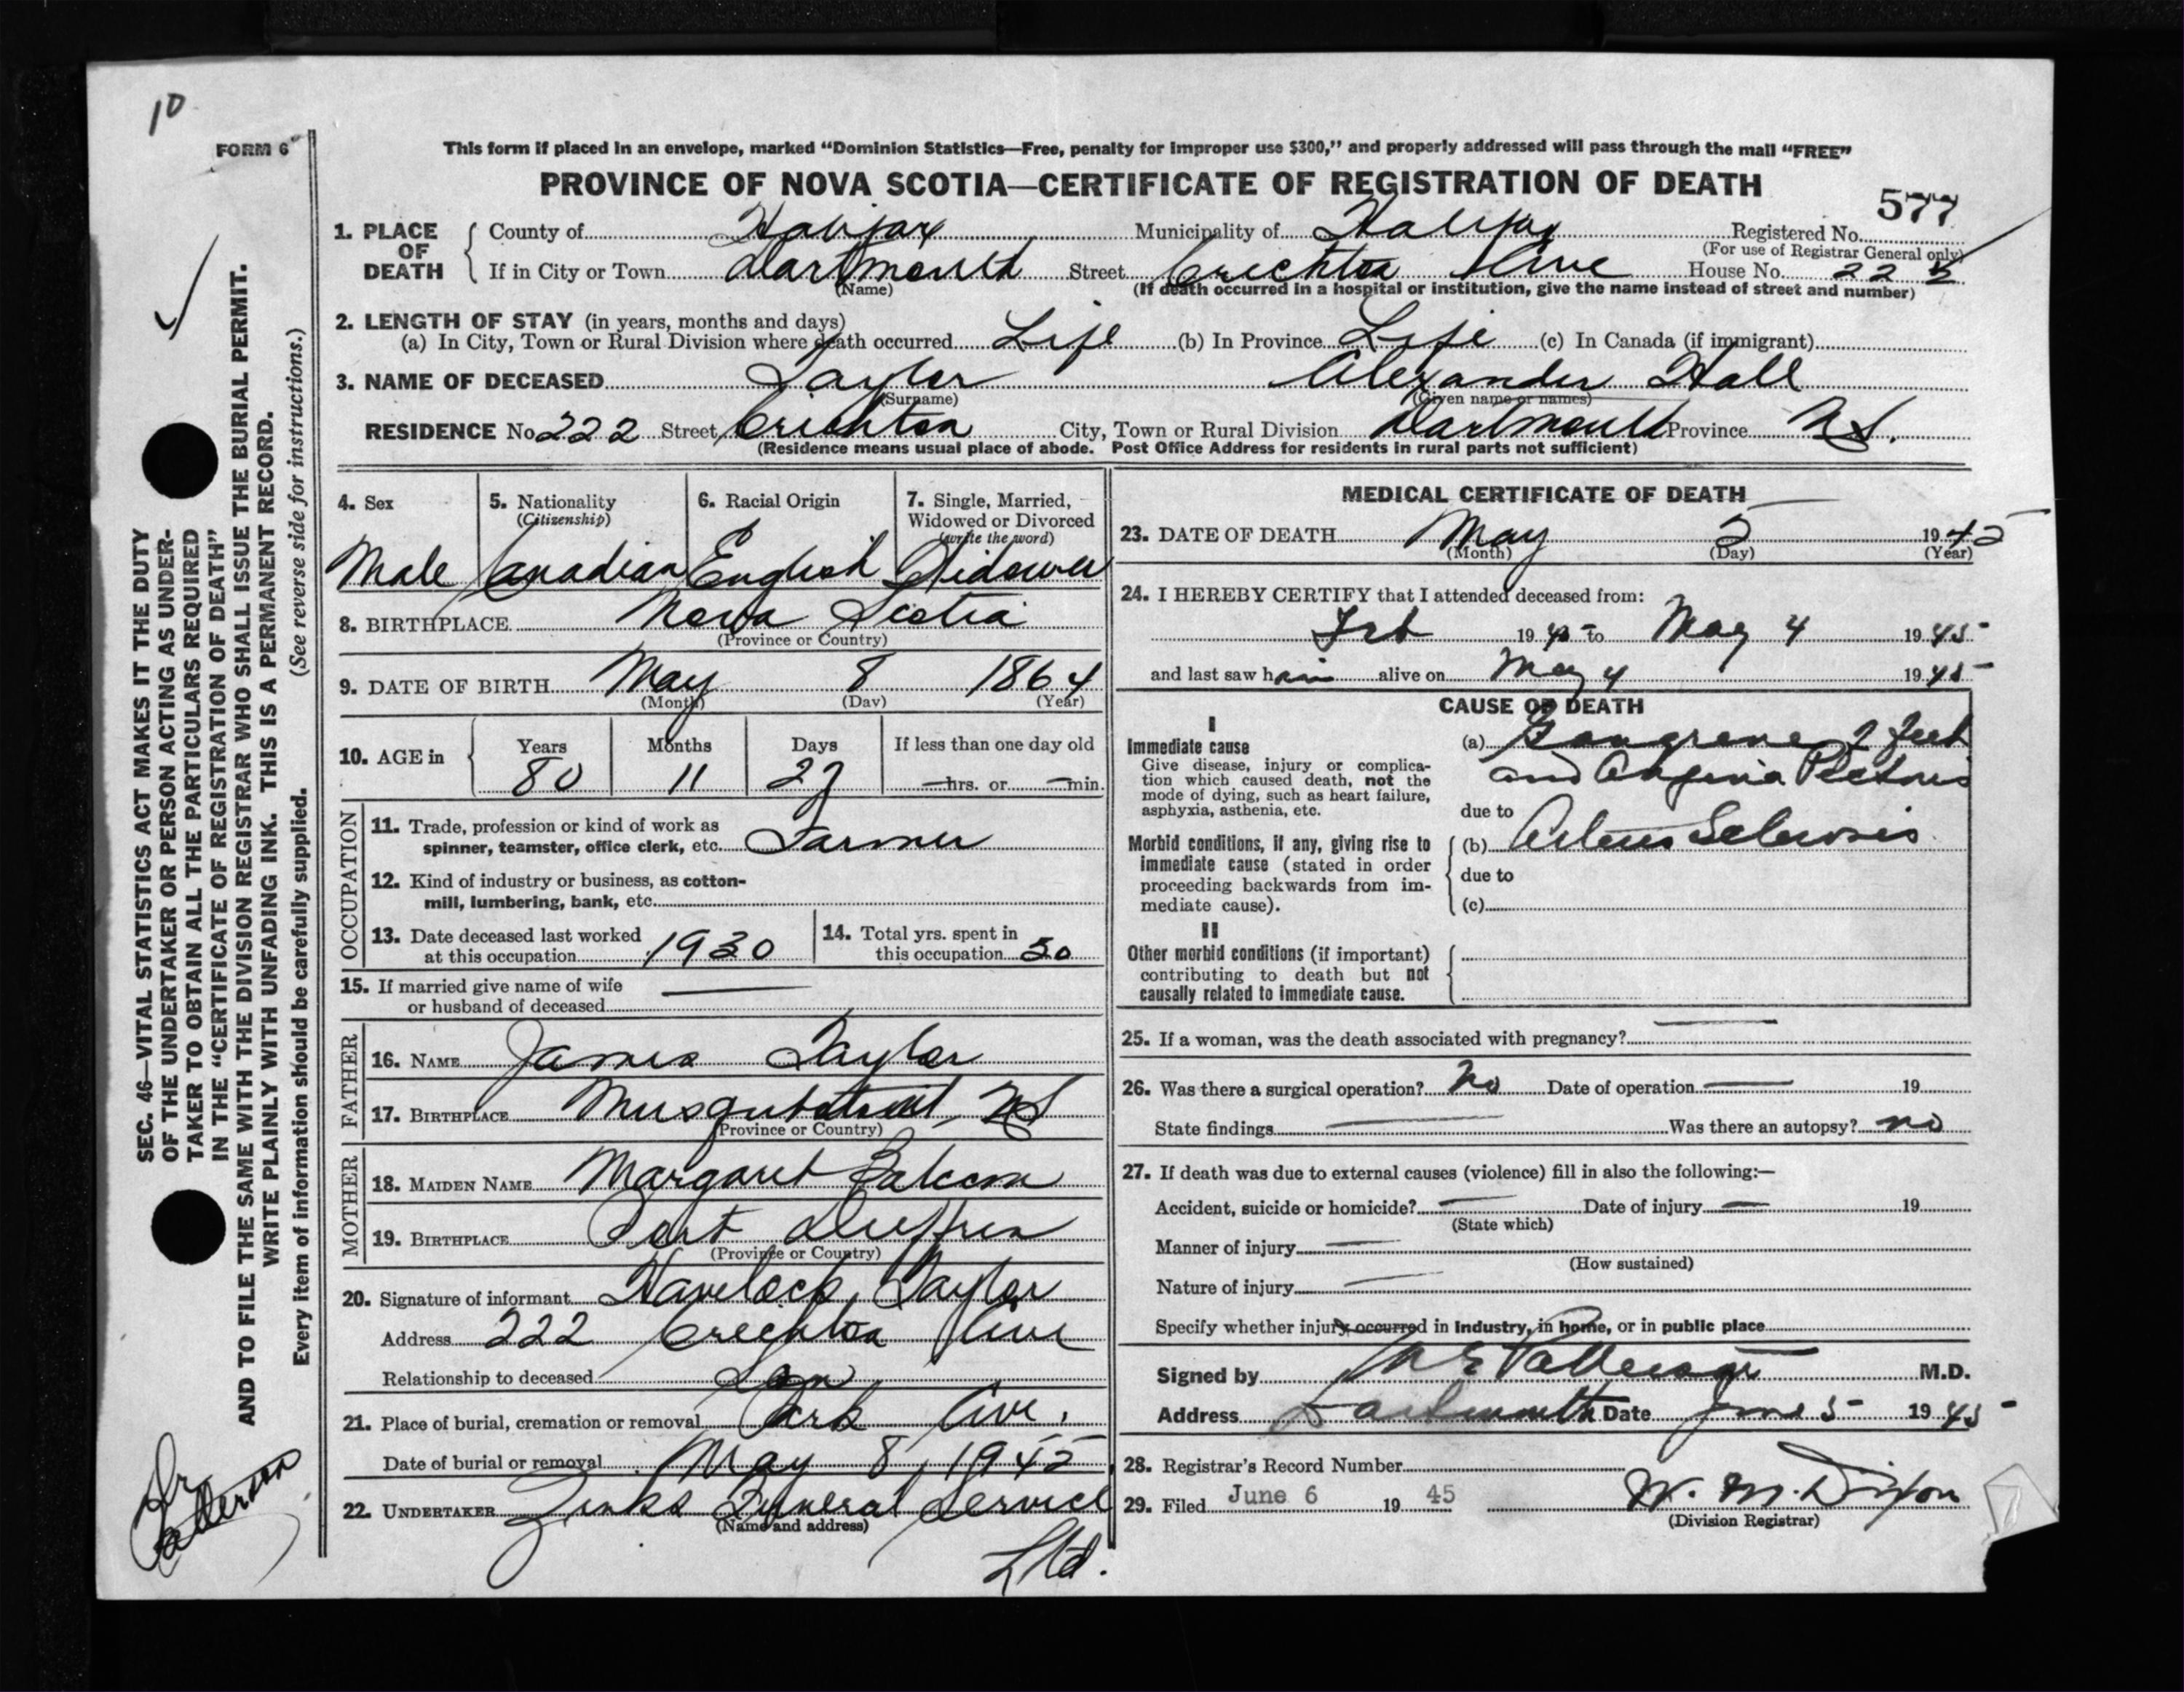 10
FORM 6
This form if placed in an envelope, marked “Dominion Statistics—Free, penalty for improper use $300,” and properly addressed will pass through the mail “FREE”
PROVINCE OF NOVA SCOTIA—CERTIFICATE OF REGISTRATION OF DEATH
577
1. PLACE OF DEATH
County of Halifax Municipality of Halifax Registered No.
(For use of Registrar General only)
If in City or Town Dartmouth Street Crichton Ave House No. 222
(Name) (If death occurred in a hospital or institution, give the name instead of street and number)
2. LENGTH OF STAY (in years, months and days)
(a) In City, Town or Rural Division where death occurred Life (b) In Province Life (c) In Canada (if immigrant)
3. NAME OF DECEASED Taylor Alexander Hall
(Surname) (Given name or names)
RESIDENCE No 222 Street Crichton City, Town or Rural Division Dartmouth Province N.S.
(Residence means usual place of abode. Post Office Address for residents in rural parts not sufficient)
4. Sex
Male
5. Nationality
(Citizenship)
Canadian
6. Racial Origin
English
7. Single, Married,
Widowed or Divorced
(write the word)
Widower
8. BIRTHPLACE Nova Scotia
(Province or Country)
9. DATE OF BIRTH May 8 1864
(Month) (Day) (Year)
10. AGE in
Years Months Days If less than one day old
80 11 27 — hrs. or — min.
OCCUPATION
11. Trade, profession or kind of work as
spinner, teamster, office clerk, etc. Farmer
12. Kind of industry or business, as cotton-
mill, lumbering, bank, etc.
13. Date deceased last worked
at this occupation 1930
14. Total yrs. spent in
this occupation 50
15. If married give name of wife
or husband of deceased
FATHER
16. NAME James Taylor
17. BIRTHPLACE Musquodoboit, NS
(Province or Country)
MOTHER
18. MAIDEN NAME Margaret Balcom
19. BIRTHPLACE Port Dufferin
(Province or Country)
20. Signature of informant Havelock Taylor
Address 222 Crichton Ave
Relationship to deceased Son
21. Place of burial, cremation or removal Park Ave.
Date of burial or removal May 8, 1945
22. UNDERTAKER Zinks Funeral Service
(Name and address)
Ltd.
MEDICAL CERTIFICATE OF DEATH
23. DATE OF DEATH May 5 1945
(Month) (Day) (Year)
24. I HEREBY CERTIFY that I attended deceased from:
Feb 19 to May 4 1945
and last saw him alive on May 4 1945
CAUSE OF DEATH
I
Immediate cause
Give disease, injury or complica-
tion which caused death, not the
mode of dying, such as heart failure,
asphyxia, asthenia, etc.
(a) Gangrene 2 feet
and Angina Pectoris
due to
Morbid conditions, if any, giving rise to
immediate cause (stated in order
proceeding backwards from im-
mediate cause).
(b) Arterio Sclerosis
due to
(c)
II
Other morbid conditions (if important)
contributing to death but not
causally related to immediate cause.
25. If a woman, was the death associated with pregnancy? —
26. Was there a surgical operation? No Date of operation — 19
State findings — Was there an autopsy? no
27. If death was due to external causes (violence) fill in also the following:—
Accident, suicide or homicide? — Date of injury — 19
(State which)
Manner of injury —
(How sustained)
Nature of injury —
Specify whether injury occurred in industry, in home, or in public place
Signed by Patterson M.D.
Address Dartmouth Date June 5 1945
28. Registrar's Record Number
29. Filed June 6 19 45 W. M. Dixon
(Division Registrar)
SEC. 46—VITAL STATISTICS ACT MAKES IT THE DUTY
OF THE UNDERTAKER OR PERSON ACTING AS UNDER-
TAKER TO OBTAIN ALL THE PARTICULARS REQUIRED
IN THE “CERTIFICATE OF REGISTRATION OF DEATH”
AND TO FILE THE SAME WITH THE DIVISION REGISTRAR WHO SHALL ISSUE THE BURIAL PERMIT.
WRITE PLAINLY WITH UNFADING INK. THIS IS A PERMANENT RECORD.
Every item of information should be carefully supplied. (See reverse side for instructions.)
Dr Patterson